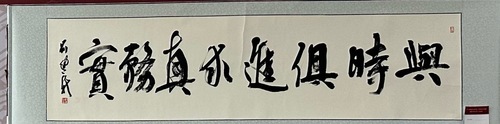 與時俱進求真務實